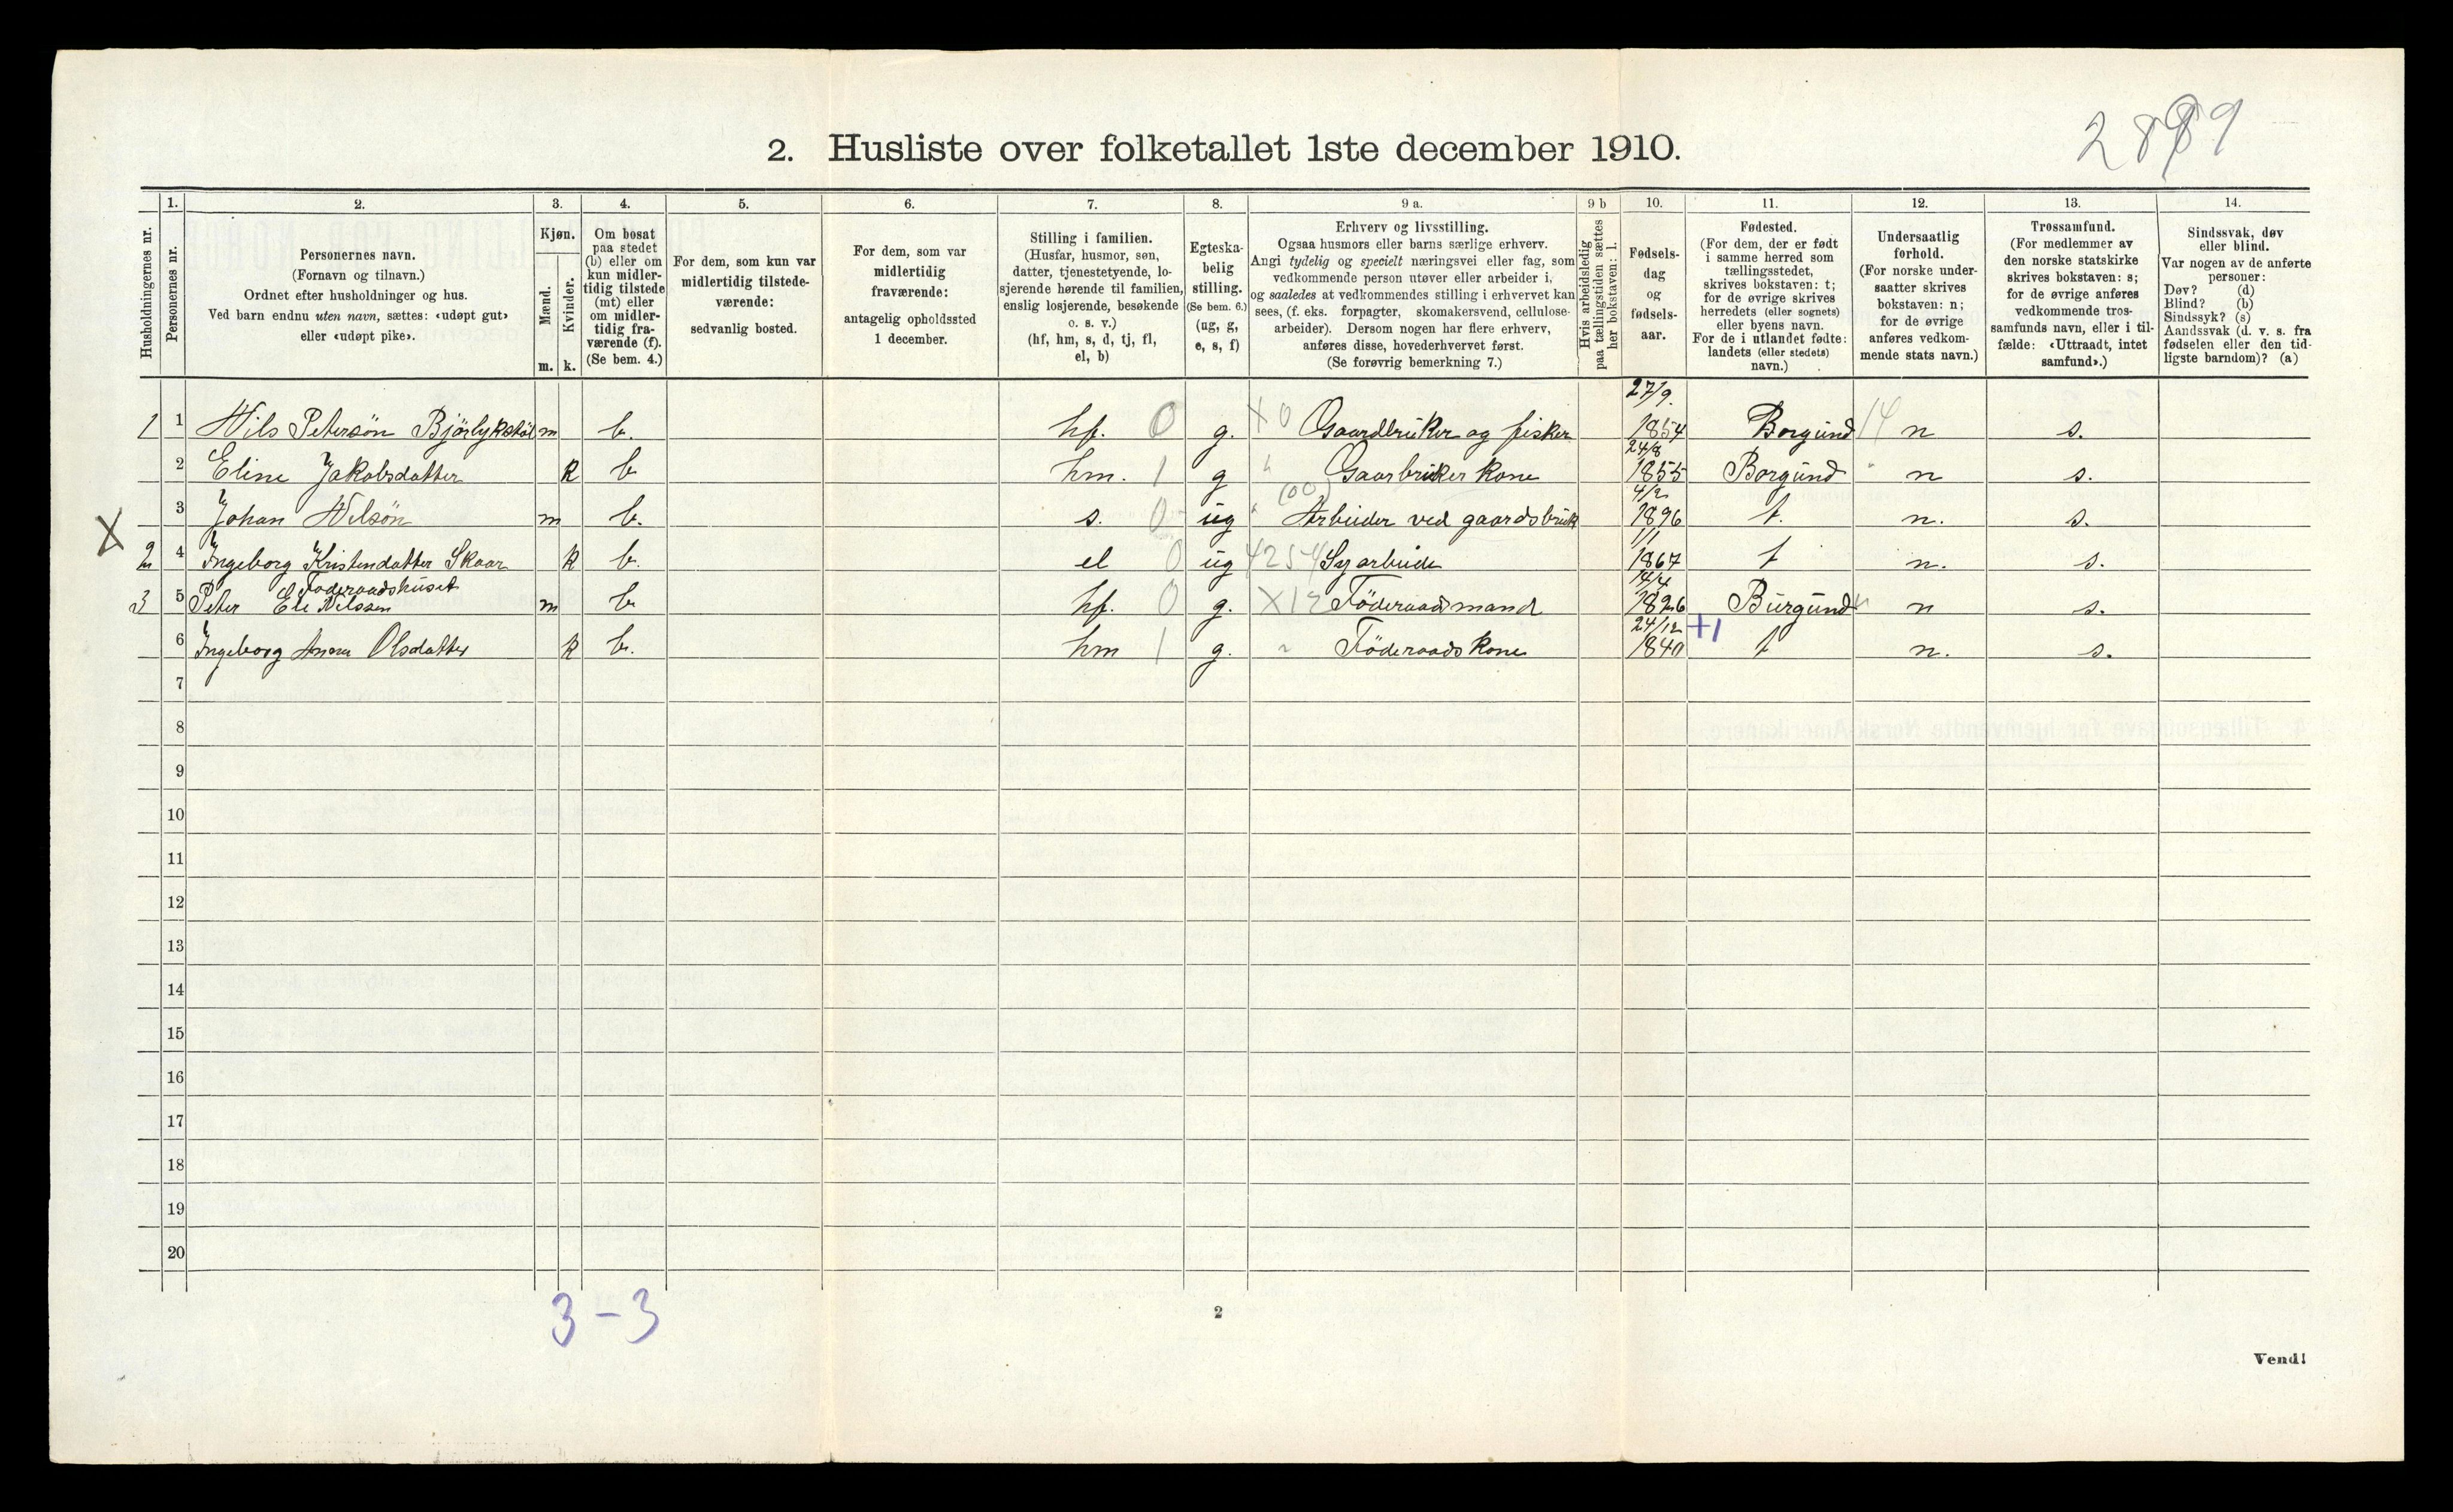 2889
2. Husliste over folketallet 1ste december 1910.
Husholdningernes nr.
1. Personernes nr.
2. Personernes navn. (Fornavn og tilnavn.) Ordnet efter husholdninger og hus. Ved barn endnu uten navn, sættes: «udøpt gut» eller «udøpt pike».
3. Kjøn. Mænd. Kvinder. m. k.
4. Om bosat paa stedet (b) eller om kun midler-tidig tilstede (mt) eller om midler-tidig fra-værende (f). (Se bem. 4.)
5. For dem, som kun var midlertidig tilstede-værende: sedvanlig bosted.
6. For dem, som var midlertidig fraværende: antagelig opholdssted 1 december.
7. Stilling i familien. (Husfar, husmor, søn, datter, tjenestetyende, lo-sjerende hørende til familien, enslig losjerende, besøkende o. s. v.) (hf, hm, s, d, tj, fl, el, b)
8. Egteska-belig stilling. (Se bem. 6.) (ug, g, e, s, f)
9 a. Erhverv og livsstilling. Ogsaa husmors eller barns særlige erhverv. Angi tydelig og specielt næringsvei eller fag, som vedkommende person utøver eller arbeider i, og saaledes at vedkommendes stilling i erhvervet kan sees, (f. eks. forpagter, skomakersvend, cellulose-arbeider). Dersom nogen har flere erhverv, anføres disse, hovederhvervet først. (Se forøvrig bemerkning 7.)
9 b Hvis arbeidsledig paa tællingstiden sættes her bokstaven: l.
10. Fødsels-dag og fødsels-aar.
11. Fødested. (For dem, der er født i samme herred som tællingsstedet, skrives bokstaven: t; for de øvrige skrives herredets (eller sognets) eller byens navn. For de i utlandet fødte: landets (eller stedets) navn.)
12. Undersaatlig forhold. (For norske under-saatter skrives bokstaven: n; for de øvrige anføres vedkom-mende stats navn.)
13. Trossamfund. (For medlemmer av den norske statskirke skrives bokstaven: s; for de øvrige anføres vedkommende tros-samfunds navn, eller i til-fælde: «Uttraadt, intet samfund».)
14. Sindssvak, døv eller blind. Var nogen av de anførte personer: Døv? (d) Blind? (b) Sindssyk? (s) Aandssvak (d. v. s. fra fødselen eller den tid-ligste barndom)? (a)
1 1 Nils Petersön Björlykstöl m b. hf. 0 g. X0 Gaardbruker og fisker 27/9. 1854 Borgund 14 n s.
2 Eline Jakobsdatter k b hm. 1 g " Gaarbruker kone 24/8 1855 Borgund " n s.
3 Johan Nilsön m b. s. 0 ug " (00) Arbeider ved gaardsbruk 4/2 1896 t. n. s.
X 2 4 Ingeborg Kristendatter Skaar k b. el 0 ug 4254 Syarbeide 1/1 1867 t n. s.
Föderaadshuset
3 5 Peter Nilssen m b. hf. 0 g. X12 Föderaadsmand 14/4 1826 Burgund " n s.
6 Ingeborg Anna Olsdatter k b. hm 1 g. " Föderaadskone 24/12 1840 +1 t n. s.
7
8
9
10
11
12
13
14
15
16
17
18
19
20
3 - 3
2
Vend!